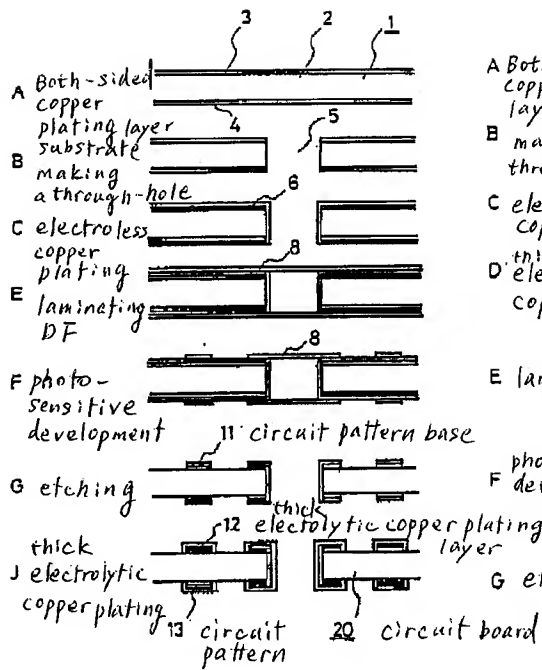 3 2 1
A Both-sided
copper
plating layer
substrate
4
5
B making
a through-hole
6
C electroless
copper
plating
8
E laminating
DF
8
F photo-
sensitive
development
11 circuit pattern base
G etching
thick
12 electolytic copper plating
layer
thick
J electrolytic
copper plating
13 circuit
pattern
20 circuit board
A Both
cop
lay
B ma
thro
C ele
cop
thi
D ele
cop
E lan
pho
F dev
G et